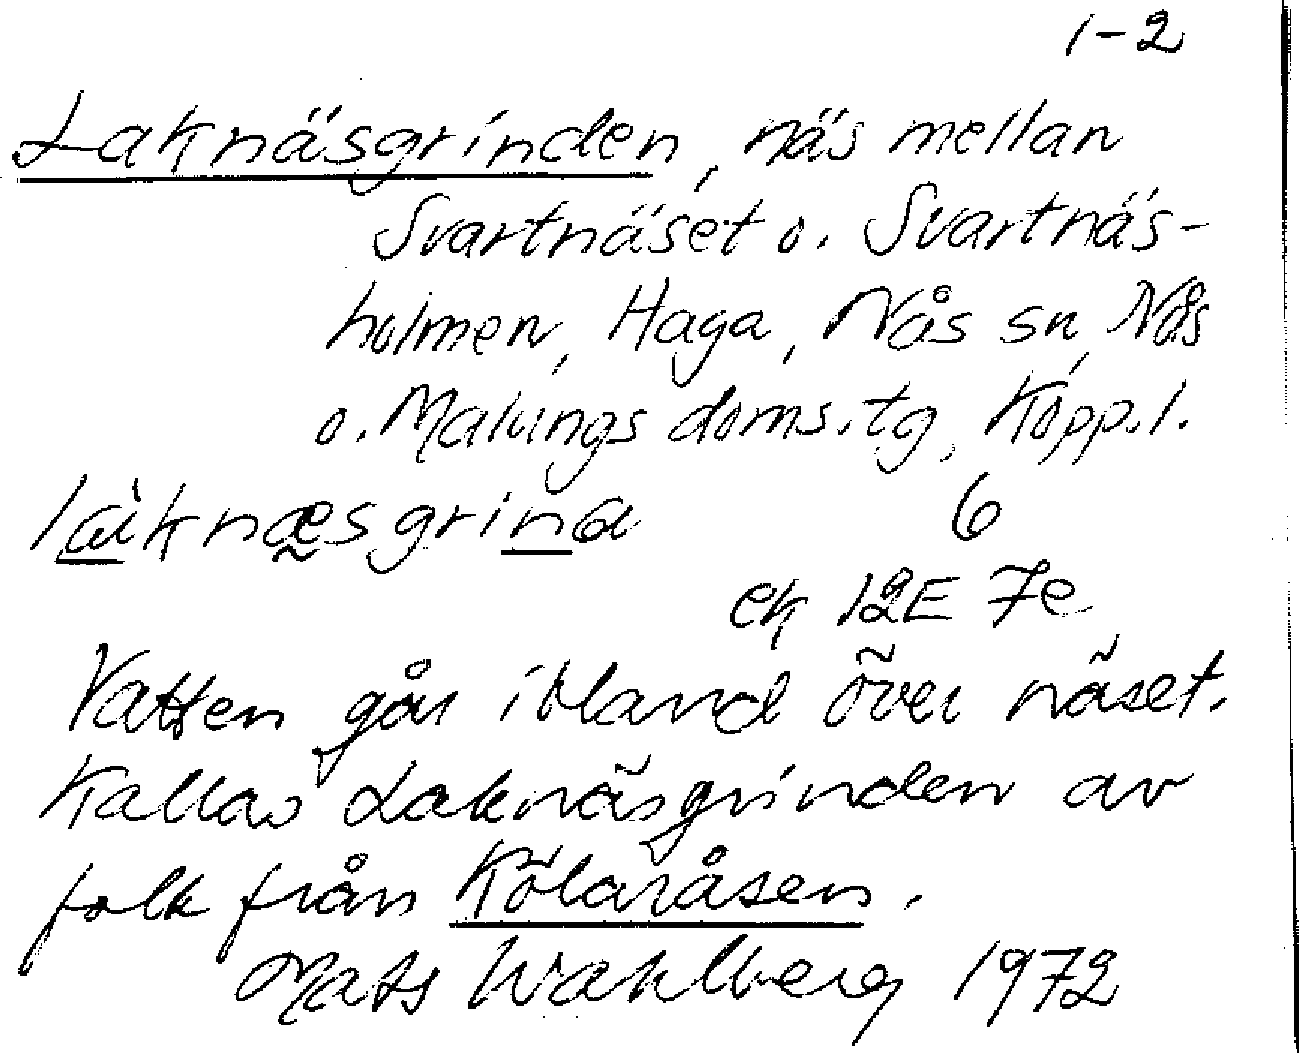 1-2
Laknäsgrinden, näs mellan
Svartnäset o. Svartnäs-
holmen, Haga, Nås sn, Nås
o. Malungs doms.tg, Kopp.l.
làknæ̰sgrina
6
ek 12E 7e
Vatten går ibland över näset.
Kallas Laknäsgrinden av
folk från Kölaråsen.
Mats Wahlberg 1972